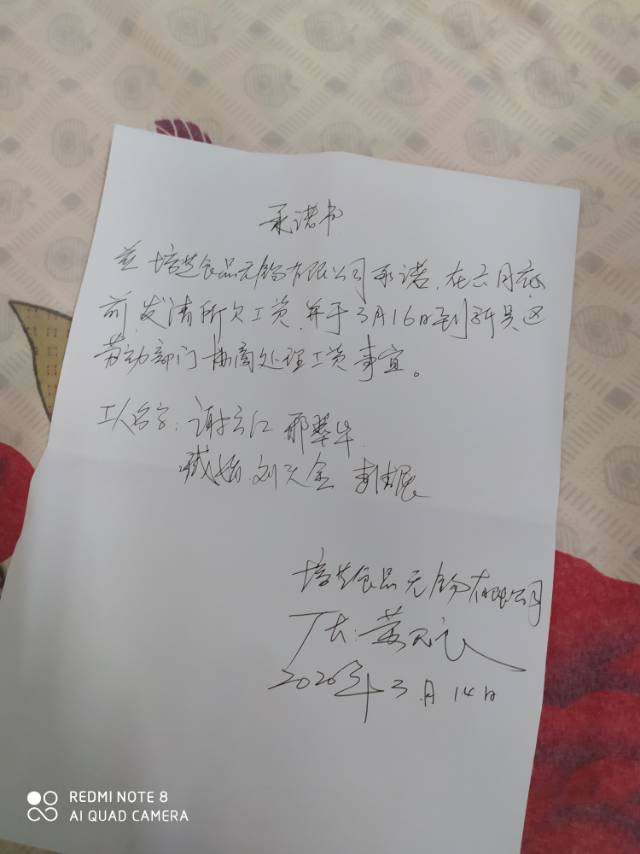 承诺书
兹培芝食品无锡有限公司承诺,在六月底
前,发清所欠工资,并于3月16日到新吴区
劳动部门协商处理工资事宜。
工人名字:谢云江 邢翠华
刘天金
培芝食品无锡有限公司
厂长:
2026年3月14日
REDMI NOTE 8
AI QUAD CAMERA